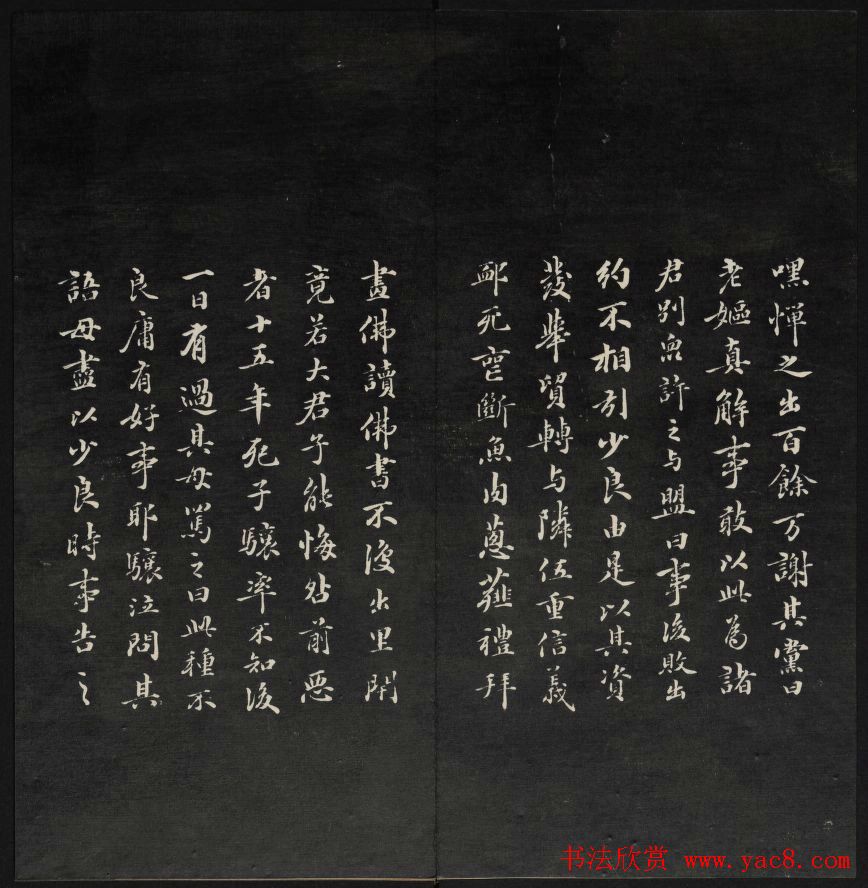 嘿憚之出百餘万謝其黨曰
老嫗真解事敢以此為諸
君別衆許之与盟曰事後敗出
約不相引少良由是以其資
發舉貿轉与隣伍重信義
卹死喪斷魚肉葱薤禮拜
畫佛讀佛書不復出里閈
竟若大君子能悔咎前惡
者十五年死子驤率不知後
一日有過其母罵之曰此種不
良庸有好事耶驤泣問其
語母盡以少良時事告之
书法欣赏 www.yac8.com